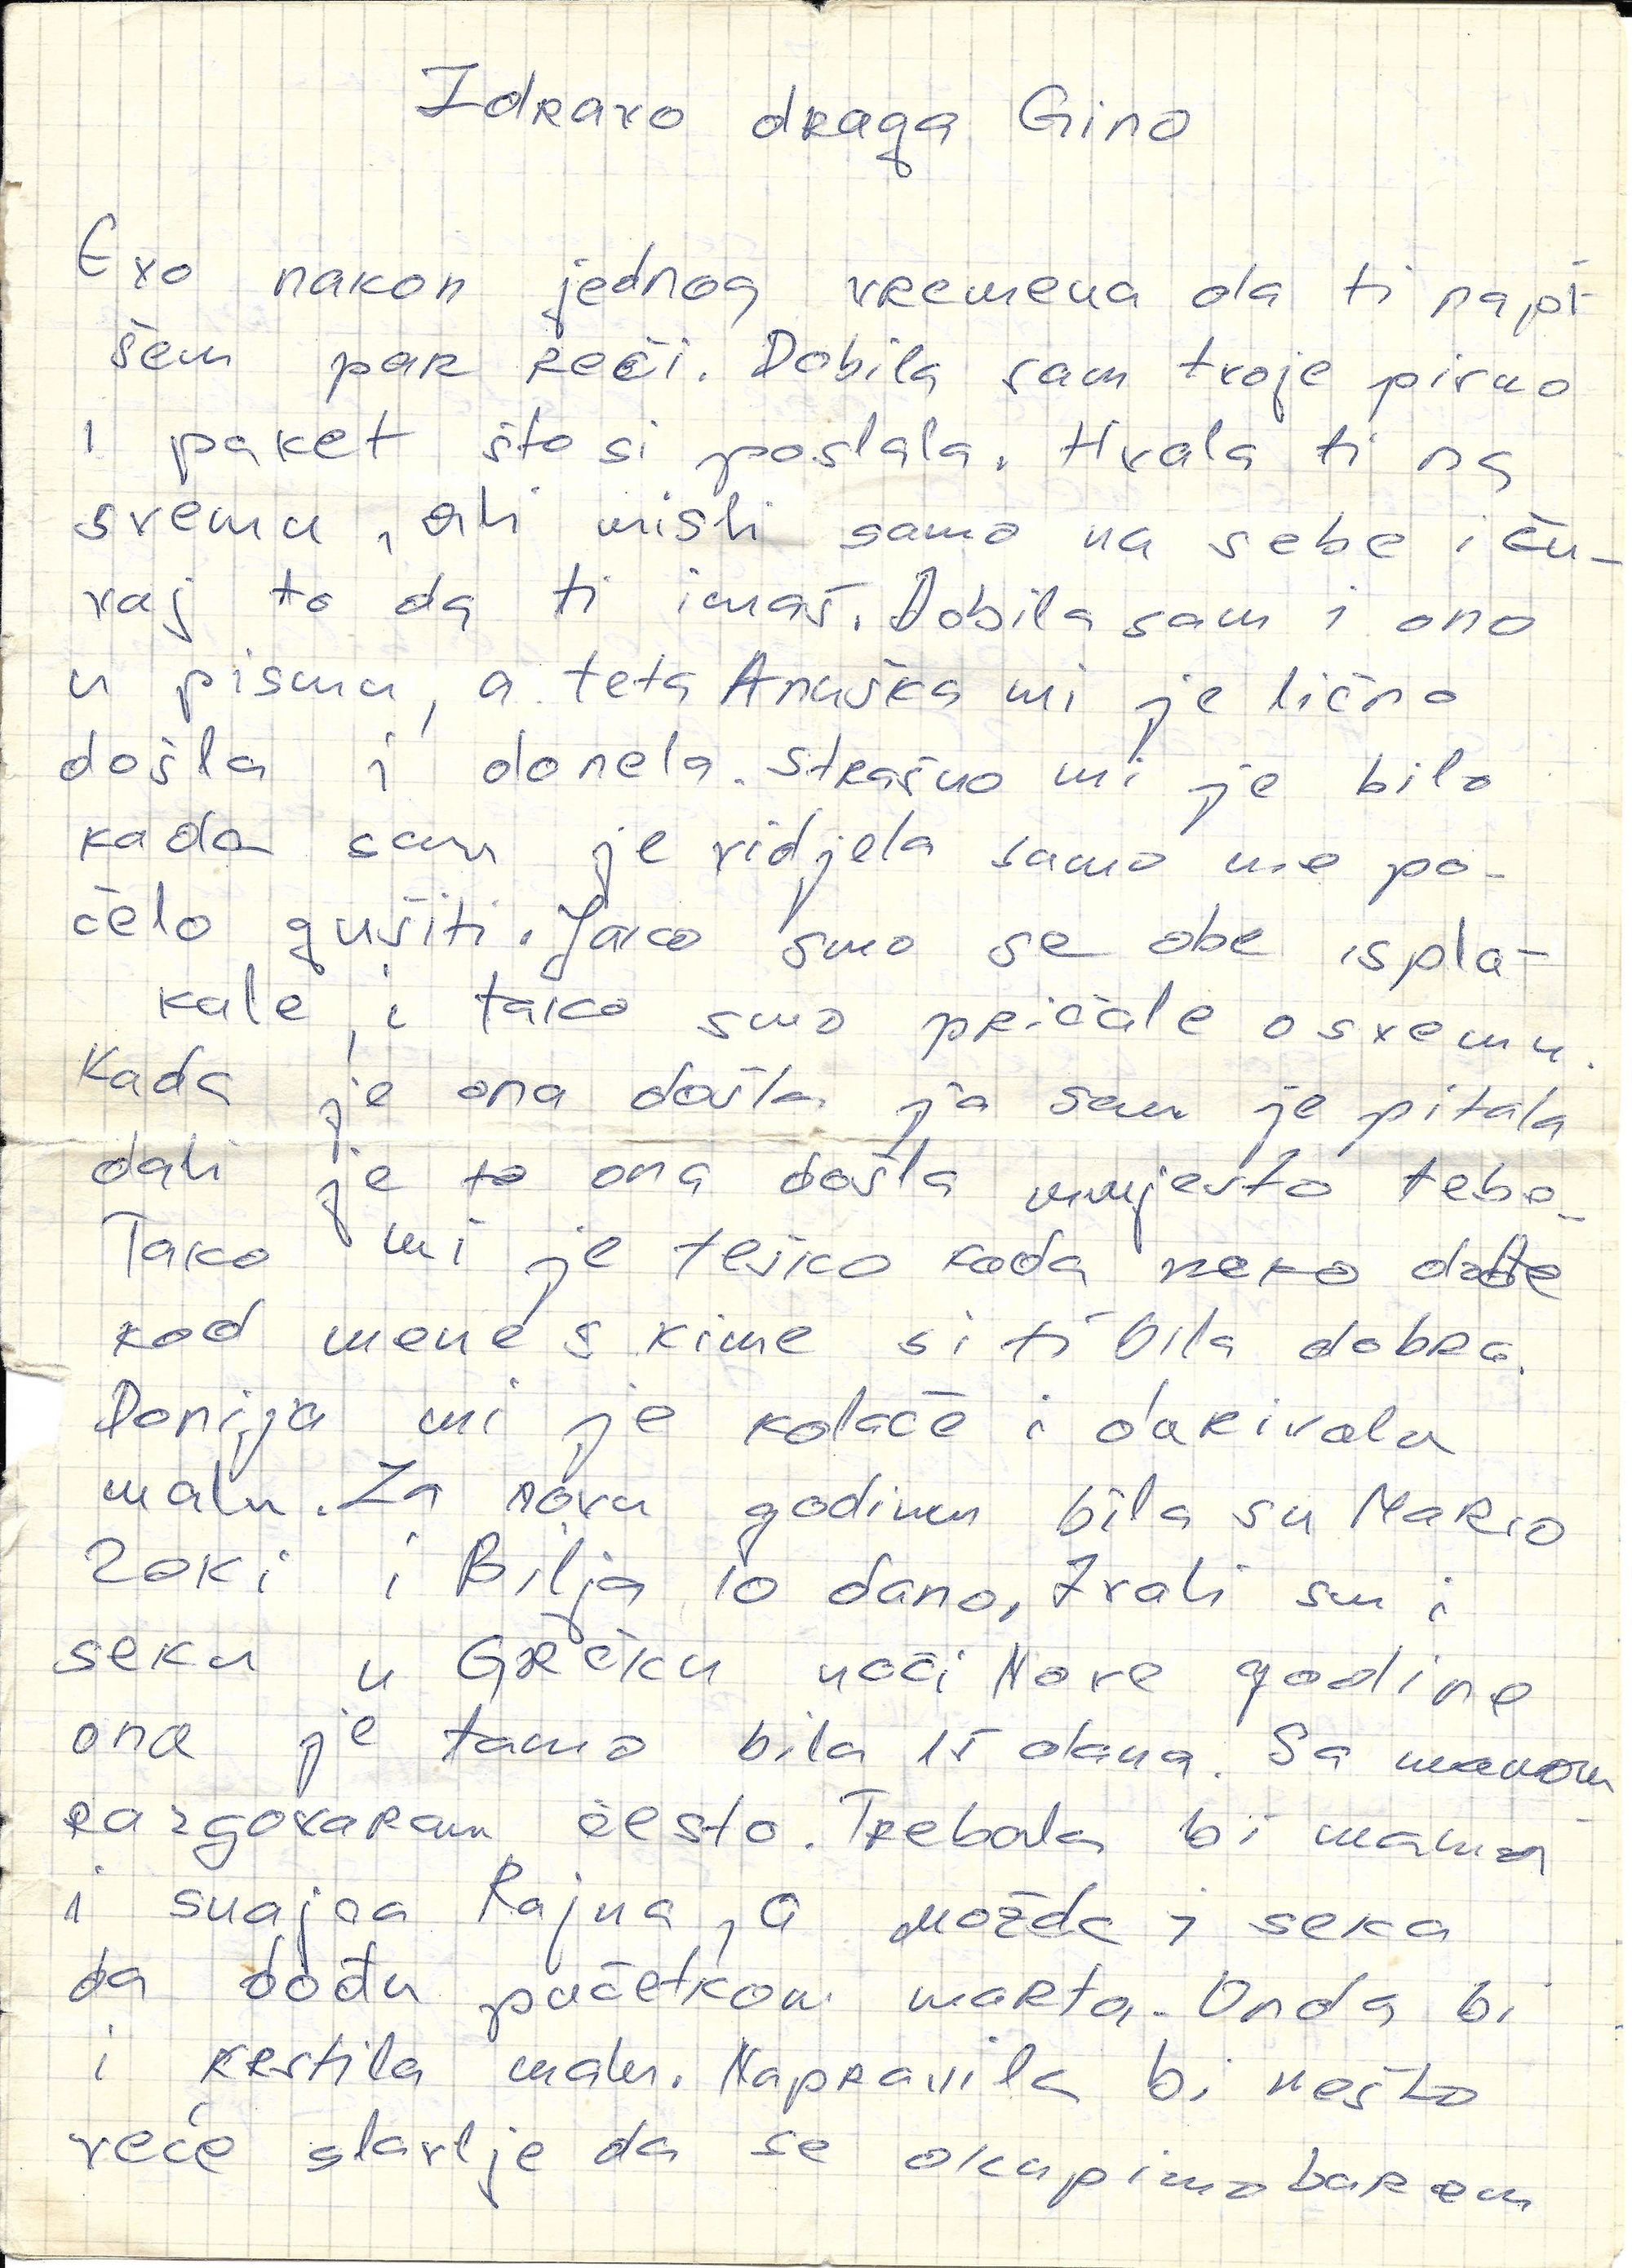 Zdravo draga Gino
Evo nakon jednog vremena da ti napi
šem par reči. Dobila sam tvoje pismo
i paket što si poslala. Hvala ti na
svemu, ali misli samo na sebe i ču-
vaj to da ti imaš. Dobila sam i ono
u pismu, a teta Anuška mi je lično
došla i donela. Strašno mi je bilo
kada sam je vidjela samo me po-
čelo gušiti. Jako smo se obe ispla-
kale, i tako smo pričale o svemu.
Kada je ona došla ja sam je pitala
dali je to ona došla umjesto tebe.
Tako mi je teško kada neko dođe
kod mene s kime si ti bila dobra.
Donija mi je kolače i darivala
malu. Za novu godinu bila su Mario
Zoki i Bilja 10 dano, Zvali su i
seku u Grčku uoči Nove godine
ona je tamo bila 15 dana. Sa mamom
razgovaram često. Trebala bi mama
i snajca Rajna, a možda i seka
da dođu početkom marta. Onda bi
i krstila malu. Napravila bi nešto
veće slavlje da se okupimo barem